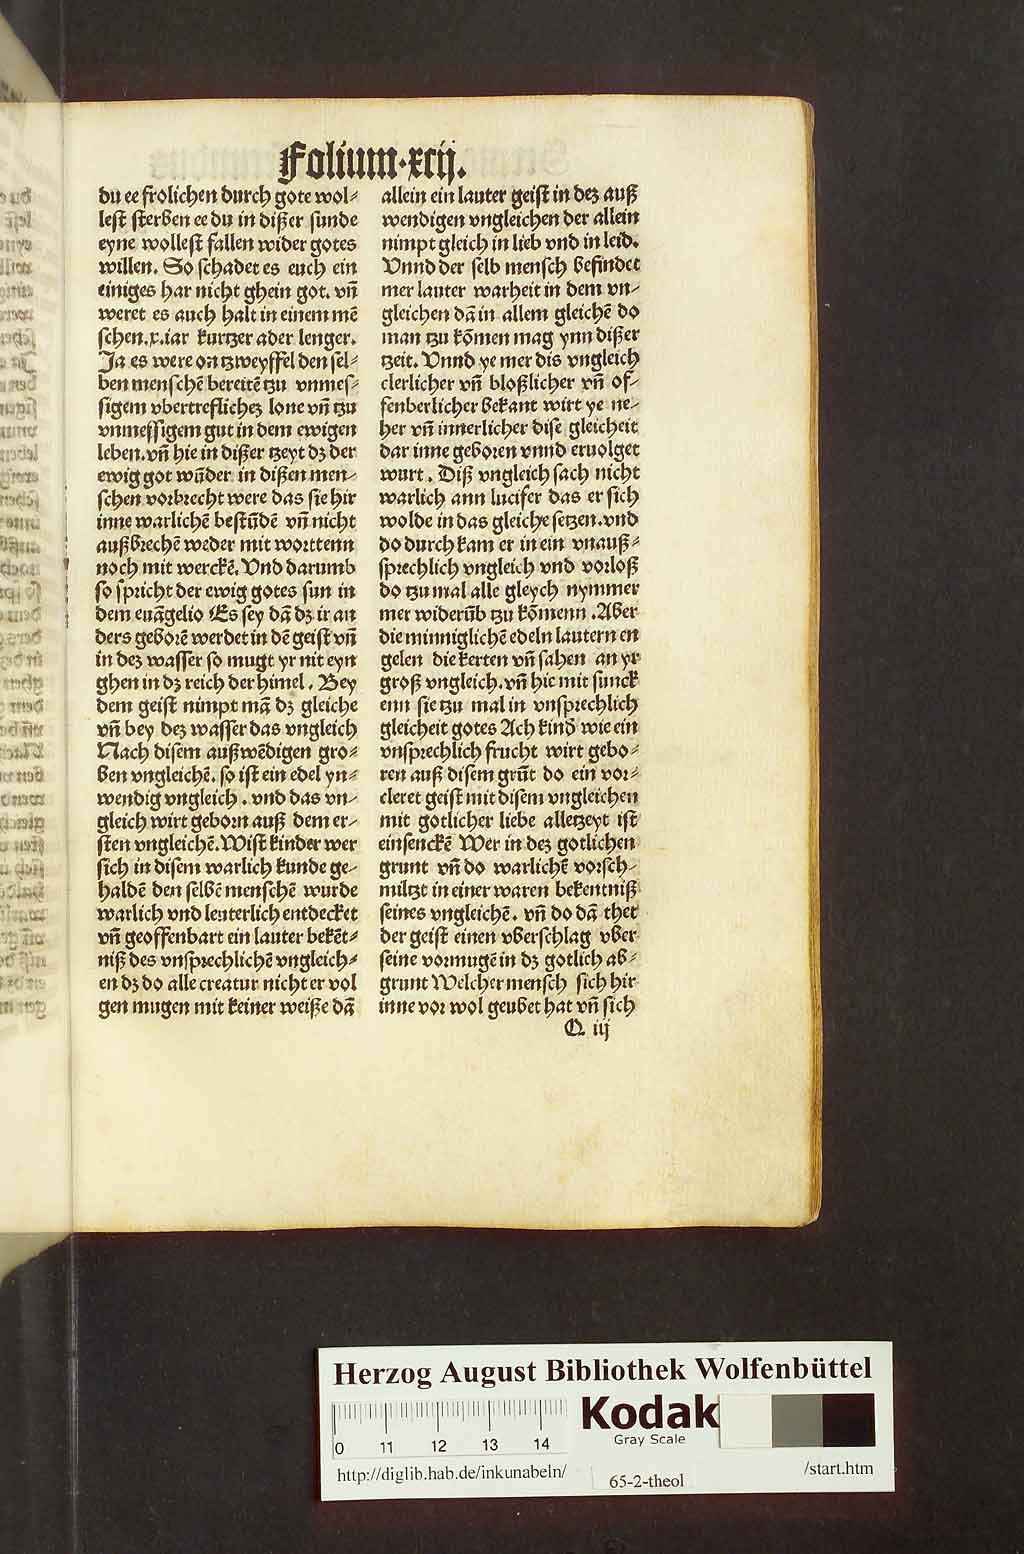 Folium·xcij.
du ee frolichen durch gote wol⸗
lest sterben ee du in dißer sunde
eyne wollest fallen wider gotes
willen. So schadet es euch ein
einiges har nicht ghein got. vn̄
weret es auch halt in einem mē
schen.x.iar kurtzer ader lenger.
Ja es were on tzweyffel den sel⸗
ben menschē bereitē tzu vnmes⸗
sigem vbertreflichez lone vn̄ tzu
vnmessigem gut in dem ewigen
leben. vn̄ hie in dißer tzeyt dz der
ewig got wūder in dißen men⸗
schen vorbrecht were das sie hir
inne warlichē bestūdē vn̄ nicht
außbrechē weder mit worttenn
noch mit werckē. Vnd darumb
so spricht der ewig gotes sun in
dem euāgelio Es sey dā dz ir an
ders geborē werdet in dē geist vn̄
in dez wasser so mugt yr nit eyn
ghen in dz reich der himel. Bey
dem geist nimpt mā dz gleiche
vn̄ bey dez wasser das vngleich
Nach disem außwēdigen gro⸗
ben vngleichē. so ist ein edel yn⸗
wendig vngleich. vnd das vn⸗
gleich wirt geborn auß dem er⸗
sten vngleichē. Wist kinder wer
sich in disem warlich kunde ge⸗
haldē den selbē menschē wurde
warlich vnd leuterlich entdecket
vn̄ geoffenbart ein lauter bekēt⸗
niß des vnsprechlichē vngleich⸗
en dz do alle creatur nicht er vol
gen mugen mit keiner weiße dā
allein ein lauter geist in dez auß
wendigen vngleichen der allein
nimpt gleich in lieb vnd in leid.
Vnnd der selb mensch befindet
mer lauter warheit in dem vn⸗
gleichen dā in allem gleichē do
man tzu kōmen mag ynn dißer
tzeit. Vnnd ye mer dis vngleich
clerlicher vn̄ bloßlicher vn̄ of⸗
fenberlicher bekant wirt ye ne⸗
her vn̄ innerlicher dise gleicheit
dar inne geboren vnnd eruolget
wurt. Diß vngleich sach nicht
warlich ann lucifer das er sich
wolde in das gleiche setzen. vnd
do durch kam er in ein vnauß⸗
sprechlich vngleich vnd vorloß
do tzu mal alle gleych nymmer
mer widerūb tzu kōmenn. Aber
die minniglichē edeln lautern en
gelen die kerten vn̄ sahen an yr
groß vngleich. vn̄ hie mit sunck
enn sie tzu mal in vnsprechlich
gleicheit gotes Ach kind wie ein
vnsprechlich frucht wirt gebo⸗
ren auß disem grūt do ein vor⸗
cleret geist mit disem vngleichen
mit gotlicher liebe alletzeyt ist
einsenckē Wer in dez gotlichen
grunt vn̄ do warlichē vorsch⸗
miltzt in einer waren bekentniß
seines vngleichē. vn̄ do dā thet
der geist einen vberschlag vber
seine vormugē in dz gotlich ab⸗
grunt Welcher mensch sich hir
inne vor wol geubet hat vn̄ sich
Q iij
Herzog August Bibliothek Wolfenbüttel
Kodak
Gray Scale
0 11 12 13 14
http://diglib.hab.de/inkunabeln/
65-2-theol
/start.htm